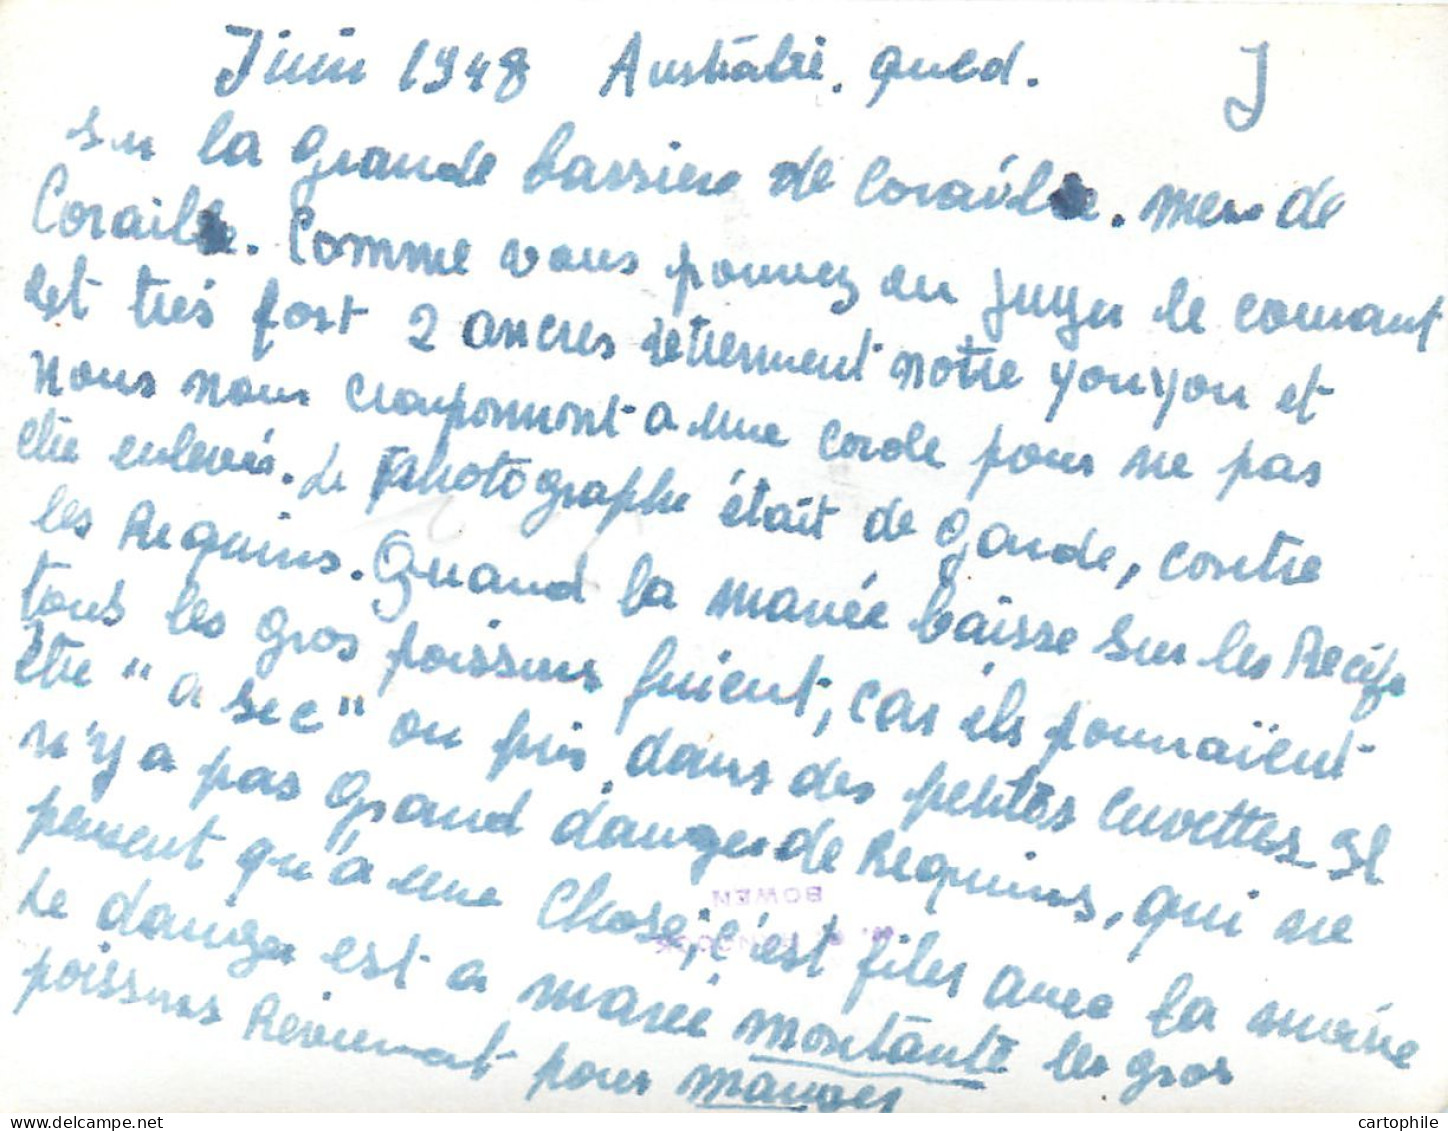 Juin 1948 Australie. Queed. J
sur la Grande barriere de Coraile. mer de
Coraile. Comme vous pouvez en juger le courant
est très fort 2 ancres retiennent notre youyou et
nous nous cramponnont a une corde pour ne pas
être enlevés. Le Photographe était de Garde, contre
les Requins. Quand la marée baisse sur les Récifs
tous les gros poissons fuient, car ils pourraient
être "a sec" ou pris dans des petites cuvettes. Il
n'y a pas Grand danger de Requins, qui ne
pensent qu'a une Chose, c'est filer avec la marée
Le danger est a marée montante les gros
poissons Reviennent pour manger
BOWEN
cartophile.com